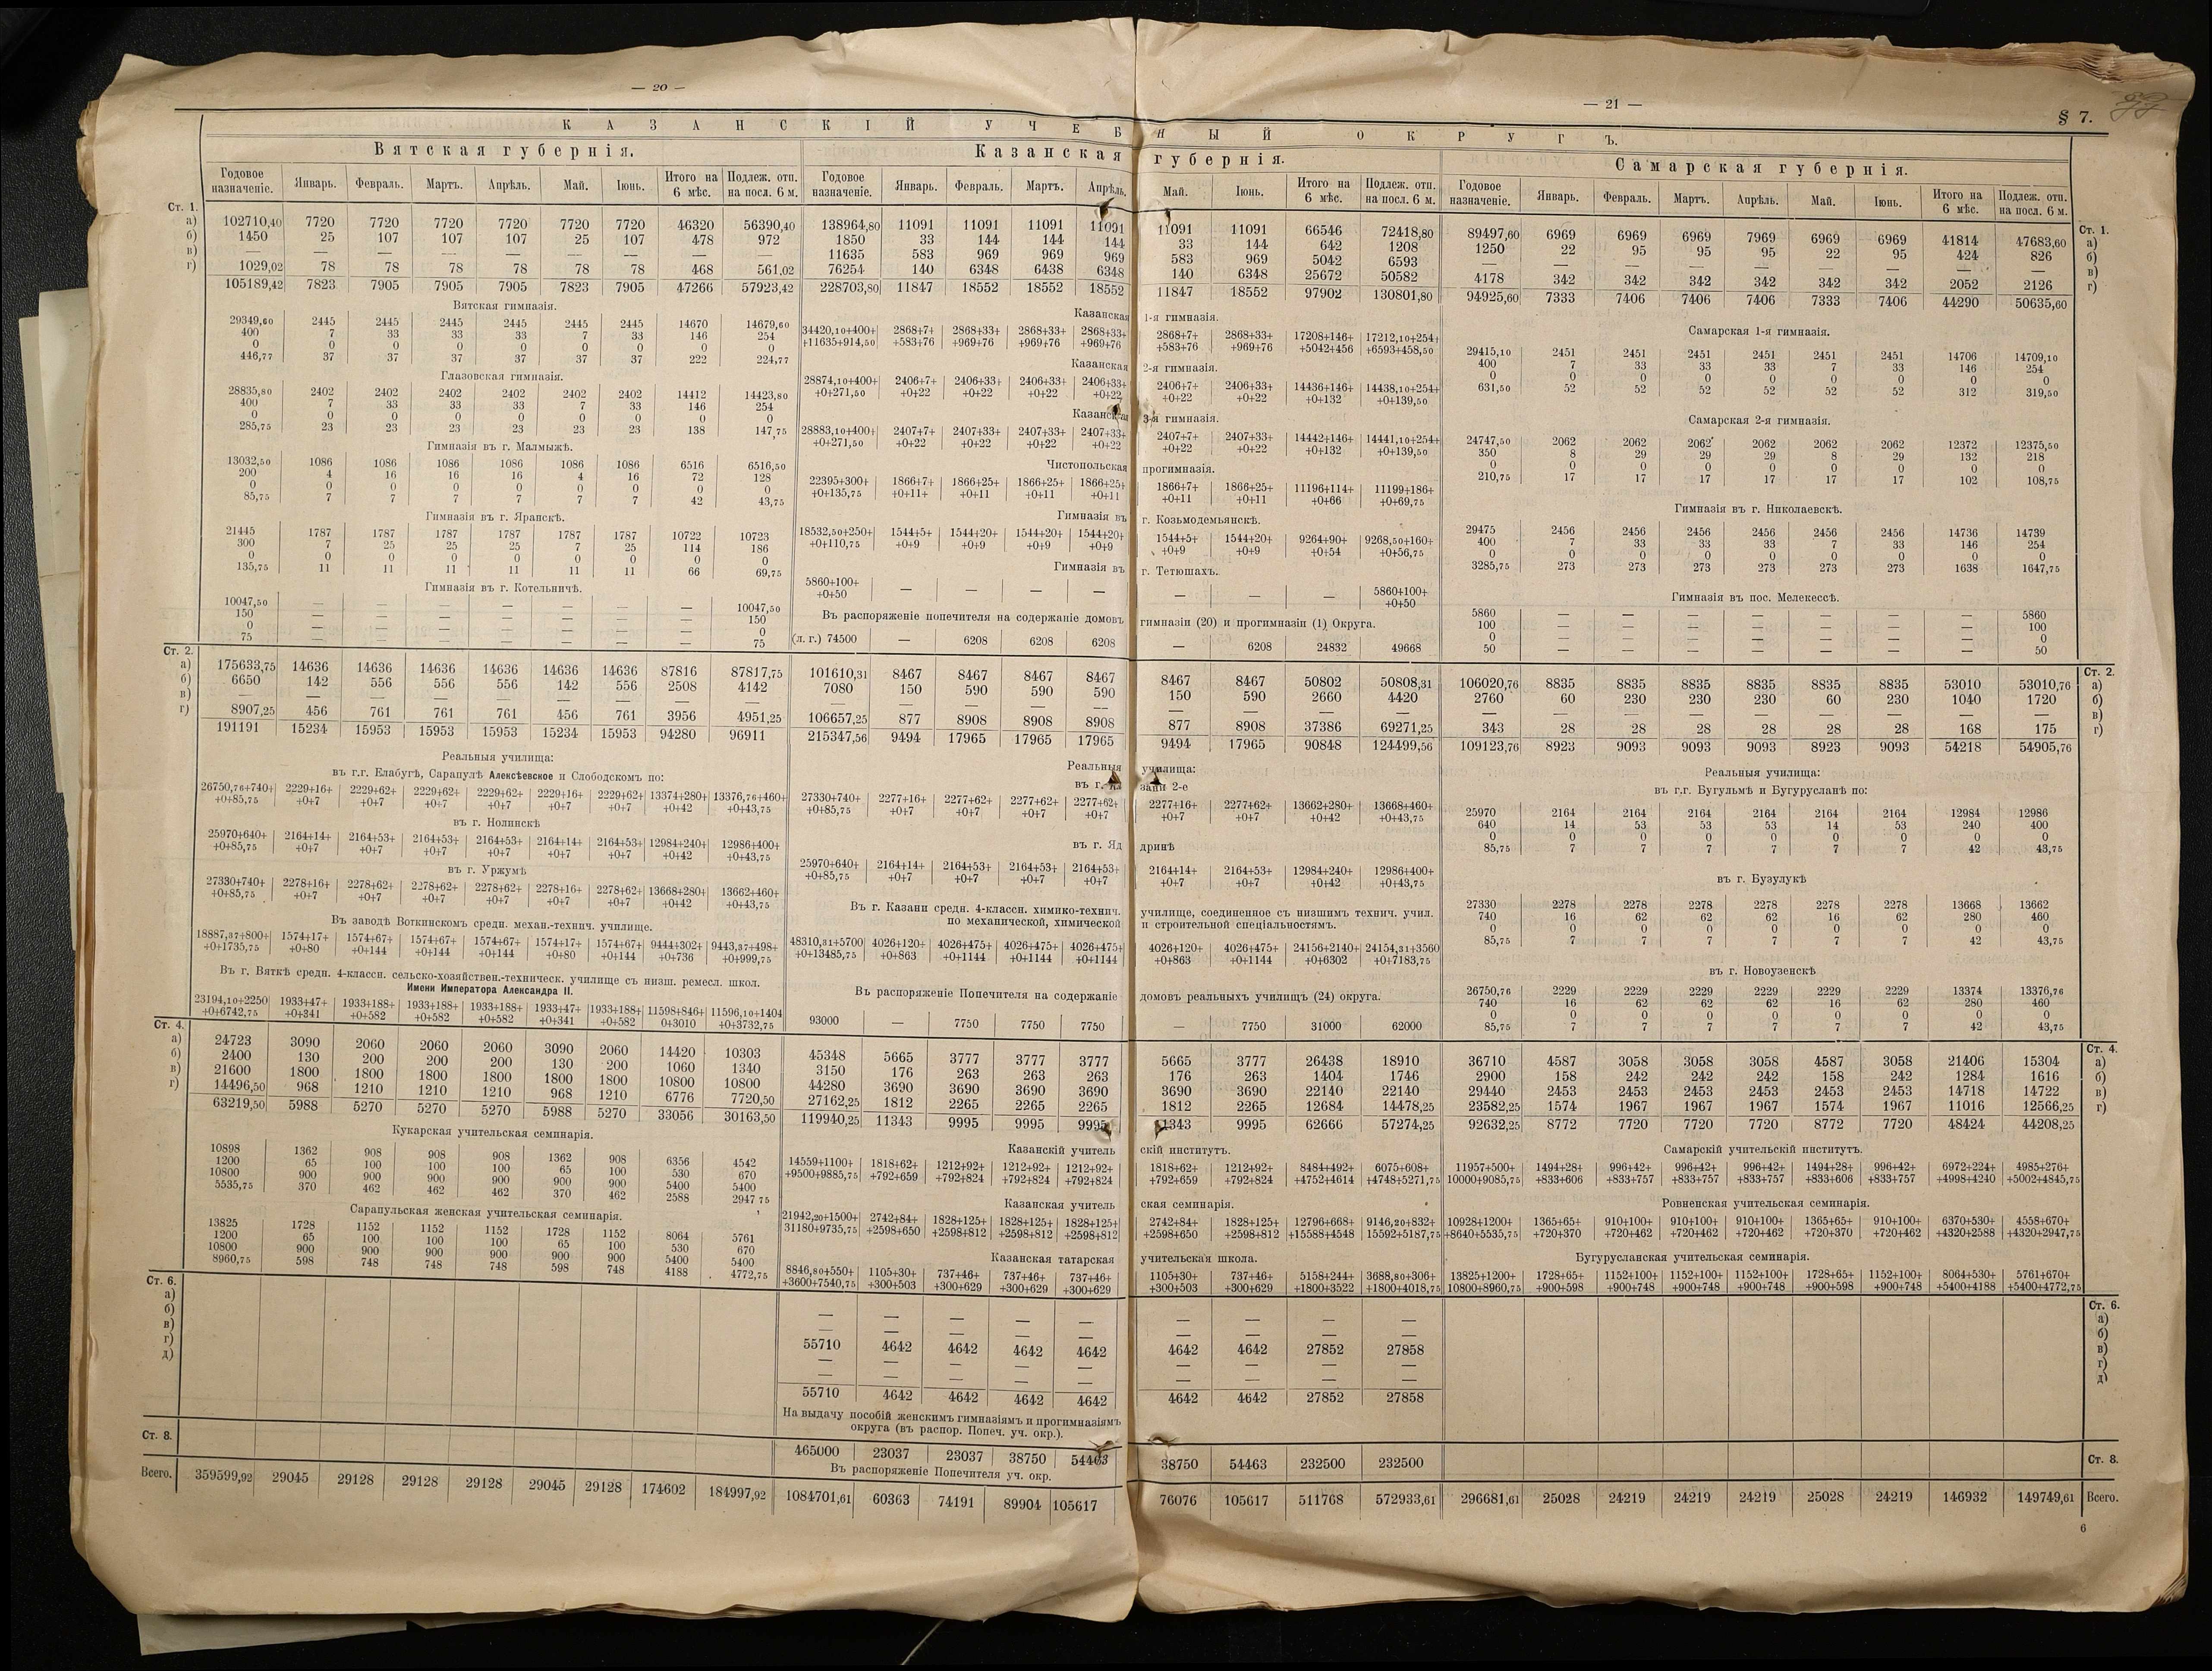 — 20 —
— 21 —
§ 7.
КАЗАНСКІЙ УЧЕБНЫЙ ОКРУГЪ.
Вятская губернія. Казанская губернія. Самарская губернія.
Годовое назначеніе. Январь. Февраль. Мартъ. Апрѣль. Май. Іюнь. Итого на 6 мѣс. Подлеж. отп. на посл. 6 м. Годовое назначеніе. Январь. Февраль. Мартъ. Апрѣль. Май. Іюнь. Итого на 6 мѣс. Подлеж. отп. на посл. 6 м. Годовое назначеніе. Январь. Февраль. Мартъ. Апрѣль. Май. Іюнь. Итого на 6 мѣс. Подлеж. отп. на посл. 6 м.
Ст. 1. Ст. 1.
а) 102710,40 7720 7720 7720 7720 7720 7720 46320 56390,40 138964,80 11091 11091 11091 11091 11091 11091 66546 72418,80 89497,60 6969 6969 6969 7969 6969 6969 41814 47683,60 а)
б) 1450 25 107 107 107 25 107 478 972 1850 33 144 144 144 33 144 642 1208 1250 22 95 95 95 22 95 424 826 б)
в) — — — — — — — — — 11635 583 969 969 969 583 969 5042 6593 — — — — — — — — — в)
г) 1029,02 78 78 78 78 78 78 468 561,02 76254 140 6348 6438 6348 140 6348 25672 50582 4178 342 342 342 342 342 342 2052 2126 г)
105189,42 7823 7905 7905 7905 7823 7905 47266 57923,42 228703,80 11847 18552 18552 18552 11847 18552 97902 130801,80 94925,60 7333 7406 7406 7406 7333 7406 44290 50635,60
Вятская гимназія.
29349,60 2445 2445 2445 2445 2445 2445 14670 14679,60
400 7 33 33 33 7 33 146 254
0 0 0 0 0 0 0 0 0
446,77 37 37 37 37 37 37 222 224,77
Глазовская гимназія.
28835,80 2402 2402 2402 2402 2402 2402 14412 14423,80
400 7 33 33 33 7 33 146 254
0 0 0 0 0 0 0 0 0
285,75 23 23 23 23 23 23 138 147,75
Гимназія въ г. Малмыжѣ.
13032,50 1086 1086 1086 1086 1086 1086 6516 6516,50
200 4 16 16 16 4 16 72 128
0 0 0 0 0 0 0 0 0
85,75 7 7 7 7 7 7 42 43,75
Гимназія въ г. Яранскѣ.
21445 1787 1787 1787 1787 1787 1787 10722 10723
300 7 25 25 25 7 25 114 186
0 0 0 0 0 0 0 0 0
135,75 11 11 11 11 11 11 66 69,75
Гимназія въ г. Котельничѣ.
10047,50 — — — — — — — 10047,50
150 — — — — — — — 150
0 — — — — — — — 0
75 — — — — — — — 75
Казанская 1-я гимназія.
34420,10+400+ 2868+7+ 2868+33+ 2868+33+ 2868+33+ 2868+7+ 2868+33+ 17208+146+ 17212,10+254+
+11635+914,50 +583+76 +969+76 +969+76 +969+76 +583+76 +969+76 +5042+456 +6593+458,50
Казанская 2-я гимназія.
28874,10+400+ 2406+7+ 2406+33+ 2406+33+ 2406+33+ 2406+7+ 2406+33+ 14436+146+ 14438,10+254+
+0+271,50 +0+22 +0+22 +0+22 +0+22 +0+22 +0+22 +0+132 +0+139,50
Казанская 3-я гимназія.
28883,10+400+ 2407+7+ 2407+33+ 2407+33+ 2407+33+ 2407+7+ 2407+33+ 14442+146+ 14441,10+254+
+0+271,50 +0+22 +0+22 +0+22 +0+22 +0+22 +0+22 +0+132 +0+139,50
Чистопольская прогимназія.
22395+300+ 1866+7+ 1866+25+ 1866+25+ 1866+25+ 1866+7+ 1866+25+ 11196+114+ 11199+186+
+0+135,75 +0+11+ +0+11 +0+11 +0+11 +0+11 +0+11 +0+66 +0+69,75
Гимназія въ г. Козьмодемьянскѣ.
18532,50+250+ 1544+5+ 1544+20+ 1544+20+ 1544+20+ 1544+5+ 1544+20+ 9264+90+ 9268,50+160+
+0+110,75 +0+9 +0+9 +0+9 +0+9 +0+9 +0+9 +0+54 +0+56,75
Гимназія въ г. Тетюшахъ.
5860+100+ — — — — — — — 5860+100+
+0+50 +0+50
Въ распоряженіе попечителя на содержаніе домовъ гимназіи (20) и прогимназіи (1) Округа.
(л. г.) 74500 — 6208 6208 6208 — 6208 24832 49668
Самарская 1-я гимназія.
29415,10 2451 2451 2451 2451 2451 2451 14706 14709,10
400 7 33 33 33 7 33 146 254
0 0 0 0 0 0 0 0 0
631,50 52 52 52 52 52 52 312 319,50
Самарская 2-я гимназія.
24747,50 2062 2062 2062 2062 2062 2062 12372 12375,50
350 8 29 29 29 8 29 132 218
0 0 0 0 0 0 0 0 0
210,75 17 17 17 17 17 17 102 108,75
Гимназія въ г. Николаевскѣ.
29475 2456 2456 2456 2456 2456 2456 14736 14739
400 7 33 33 33 7 33 146 254
0 0 0 0 0 0 0 0 0
3285,75 273 273 273 273 273 273 1638 1647,75
Гимназія въ пос. Мелекессѣ.
5860 — — — — — — — 5860
100 — — — — — — — 100
0 — — — — — — — 0
50 — — — — — — — 50
Ст. 2. Ст. 2.
а) 175633,75 14636 14636 14636 14636 14636 14636 87816 87817,75 101610,31 8467 8467 8467 8467 8467 8467 50802 50808,31 106020,76 8835 8835 8835 8835 8835 8835 53010 53010,76 а)
б) 6650 142 556 556 556 142 556 2508 4142 7080 150 590 590 590 150 590 2660 4420 2760 60 230 230 230 60 230 1040 1720 б)
в) — — — — — — — — — — — — — — — — — — — — — — — — — — — в)
г) 8907,25 456 761 761 761 456 761 3956 4951,25 106657,25 877 8908 8908 8908 877 8908 37386 69271,25 343 28 28 28 28 28 28 168 175 г)
191191 15234 15953 15953 15953 15234 15953 94280 96911 215347,56 9494 17965 17965 17965 9494 17965 90848 124499,56 109123,76 8923 9093 9093 9093 8923 9093 54218 54905,76
Реальныя училища:
въ г.г. Елабугѣ, Сарапулѣ Алексѣевское и Слободскомъ по:
26750,76+740+ 2229+16+ 2229+62+ 2229+62+ 2229+62+ 2229+16+ 2229+62+ 13374+280+ 13376,76+460+
+0+85,75 +0+7 +0+7 +0+7 +0+7 +0+7 +0+7 +0+42 +0+43,75
въ г. Нолинскѣ
25970+640+ 2164+14+ 2164+53+ 2164+53+ 2164+53+ 2164+14+ 2164+53+ 12984+240+ 12986+400+
+0+85,75 +0+7 +0+7 +0+7 +0+7 +0+7 +0+7 +0+42 +0+43,75
въ г. Уржумѣ
27330+740+ 2278+16+ 2278+62+ 2278+62+ 2278+62+ 2278+16+ 2278+62+ 13668+280+ 13662+460+
+0+85,75 +0+7 +0+7 +0+7 +0+7 +0+7 +0+7 +0+42 +0+43,75
Въ заводѣ Воткинскомъ средн. механ-технич. училище.
18887,37+800+ 1574+17+ 1574+67+ 1574+67+ 1574+67+ 1574+17+ 1574+67+ 9444+302+ 9443,37+498+
+0+1735,75 +0+80 +0+144 +0+144 +0+144 +0+80 +0+144 +0+736 +0+999,75
Въ г. Вяткѣ средн. 4-классн. сельско-хозяйствен.-техническ. училище съ низш. ремесл. школ.
Имени Императора Александра II.
23194,10+2250 1933+47+ 1933+188+ 1933+188+ 1933+188+ 1933+47+ 1933+188+ 11598+846+ 11596,10+1404
+0+6742,75 +0+341 +0+582 +0+582 +0+582 +0+341 +0+582 0+3010 +0+3732,75
Реальныя училища:
въ г. зани 2-е
27330+740+ 2277+16+ 2277+62+ 2277+62+ 2277+62+ 2277+16+ 2277+62+ 13662+280+ 13668+460+
+0+85,75 +0+7 +0+7 +0+7 +0+7 +0+7 +0+7 +0+42 +0+43,75
въ г. Ядринѣ
25970+640+ 2164+14+ 2164+53+ 2164+53+ 2164+53+ 2164+14+ 2164+53+ 12984+240+ 12986+400+
+0+85,75 +0+7 +0+7 +0+7 +0+7 +0+7 +0+7 +0+42 +0+43,75
Въ г. Казани средн. 4-классн. химико-технич. училище, соединенное съ низшимъ технич. учил.
по механической, химической и строительной спеціальностямъ.
48310,31+5700 4026+120+ 4026+475+ 4026+475+ 4026+475+ 4026+120+ 4026+475+ 24156+2140+ 24154,31+3560
+0+13485,75 +0+863 +0+1144 +0+1144 +0+1144 +0+863 +0+1144 +0+6302 +0+7183,75
Въ распоряженіе Попечителя на содержаніе домовъ реальныхъ училищъ (24) округа.
93000 — 7750 7750 7750 — 7750 31000 62000
Реальныя училища:
въ г.г. Бугульмѣ и Бугурусланѣ по:
25970 2164 2164 2164 2164 2164 2164 12984 12986
640 14 53 53 53 14 53 240 400
0 0 0 0 0 0 0 0 0
85,75 7 7 7 7 7 7 42 43,75
въ г. Бузулукѣ
27330 2278 2278 2278 2278 2278 2278 13668 13662
740 16 62 62 62 16 62 280 460
0 0 0 0 0 0 0 0 0
85,75 7 7 7 7 7 7 42 43,75
въ г. Новоузенскѣ
26750,76 2229 2229 2229 2229 2229 2229 13374 13376,76
740 16 62 62 62 16 62 280 460
0 0 0 0 0 0 0 0 0
85,75 7 7 7 7 7 7 42 43,75
Ст. 4. Ст. 4.
а) 24723 3090 2060 2060 2060 3090 2060 14420 10303 45348 5665 3777 3777 3777 5665 3777 26438 18910 36710 4587 3058 3058 3058 4587 3058 21406 15304 а)
б) 2400 130 200 200 200 130 200 1060 1340 3150 176 263 263 263 176 263 1404 1746 2900 158 242 242 242 158 242 1284 1616 б)
в) 21600 1800 1800 1800 1800 1800 1800 10800 10800 44280 3690 3690 3690 3690 3690 3690 22140 22140 29440 2453 2453 2453 2453 2453 2453 14718 14722 в)
г) 14496,50 968 1210 1210 1210 968 1210 6776 7720,50 27162,25 1812 2265 2265 2265 1812 2265 12684 14478,25 23582,25 1574 1967 1967 1967 1574 1967 11016 12566,25 г)
63219,50 5988 5270 5270 5270 5988 5270 33056 30163,50 119940,25 11343 9995 9995 9995 11343 9995 62666 57274,25 92632,25 8772 7720 7720 7720 8772 7720 48424 44208,25
Кукарская учительская семинарія.
10898 1362 908 908 908 1362 908 6356 4542
1200 65 100 100 100 65 100 530 670
10800 900 900 900 900 900 900 5400 5400
5535,75 370 462 462 462 370 462 2588 2947 75
Сарапульская женская учительская семинарія.
13825 1728 1152 1152 1152 1728 1152 8064 5761
1200 65 100 100 100 65 100 530 670
10800 900 900 900 900 900 900 5400 5400
8960,75 598 748 748 748 598 748 4188 4772,75
Казанскій учительскій институтъ.
14559+1100+ 1818+62+ 1212+92+ 1212+92+ 1212+92+ 1818+62+ 1212+92+ 8484+492+ 6075+608+
+9500+9885,75 +792+659 +792+824 +792+824 +792+824 +792+659 +792+824 +4752+4614 +4748+5271,75
Казанская учительская семинарія.
21942,20+1500+ 2742+84+ 1828+125+ 1828+125+ 1828+125+ 2742+84+ 1828+125+ 12796+668+ 9146,20+832+
31180+9735,75 +2598+650 +2598+812 +2598+812 +2598+812 +2598+650 +2598+812 +15588+4548 15592+5187,75
Казанская татарская учительская школа.
8846,80+550+ 1105+30+ 737+46+ 737+46+ 737+46+ 1105+30+ 737+46+ 5158+244+ 3688,80+306+
+3600+7540,75 +300+503 +300+629 +300+629 +300+629 +300+503 +300+629 +1800+3522 +1800+4018,75
Самарскій учительскій институтъ.
11957+500+ 1494+28+ 996+42+ 996+42+ 996+42+ 1494+28+ 996+42+ 6972+224+ 4985+276+
10000+9085,75 +833+606 +833+757 +833+757 +833+757 +833+606 +833+757 +4998+4240 +5002+4845,75
Ровненская учительская семинарія.
10928+1200+ 1365+65+ 910+100+ 910+100+ 910+100+ 1365+65+ 910+100+ 6370+530+ 4558+670+
+8640+5535,75 +720+370 +720+462 +720+462 +720+462 +720+370 +720+462 +4320+2588 +4320+2947,75
Бугурусланская учительская семинарія.
13825+1200+ 1728+65+ 1152+100+ 1152+100+ 1152+100+ 1728+65+ 1152+100+ 8064+530+ 5761+670+
10800+8960,75 +900+598 +900+748 +900+748 +900+748 +900+598 +900+748 +5400+4188 +5400+4772,75
Ст. 6. Ст. 6.
а) — — — — — — — — — а)
б) — — — — — — — — — б)
в) 55710 4642 4642 4642 4642 4642 4642 27852 27858 в)
г) — — — — — — — — — г)
д) — — — — — — — — — д)
55710 4642 4642 4642 4642 4642 4642 27852 27858
На выдачу пособій женскимъ гимназіямъ и прогимназіямъ
округа (въ распор. Попеч. уч. окр.).
Ст. 8. 465000 23037 23037 38750 54463 38750 54463 232500 232500 Ст. 8.
Въ распоряженіе Попечителя уч. окр.
Всего. 359599,92 29045 29128 29128 29128 29045 29128 174602 184997,92 1084701,61 60363 74191 89904 105617 76076 105617 511768 572933,61 296681,61 25028 24219 24219 24219 25028 24219 146932 149749,61 Всего.
6